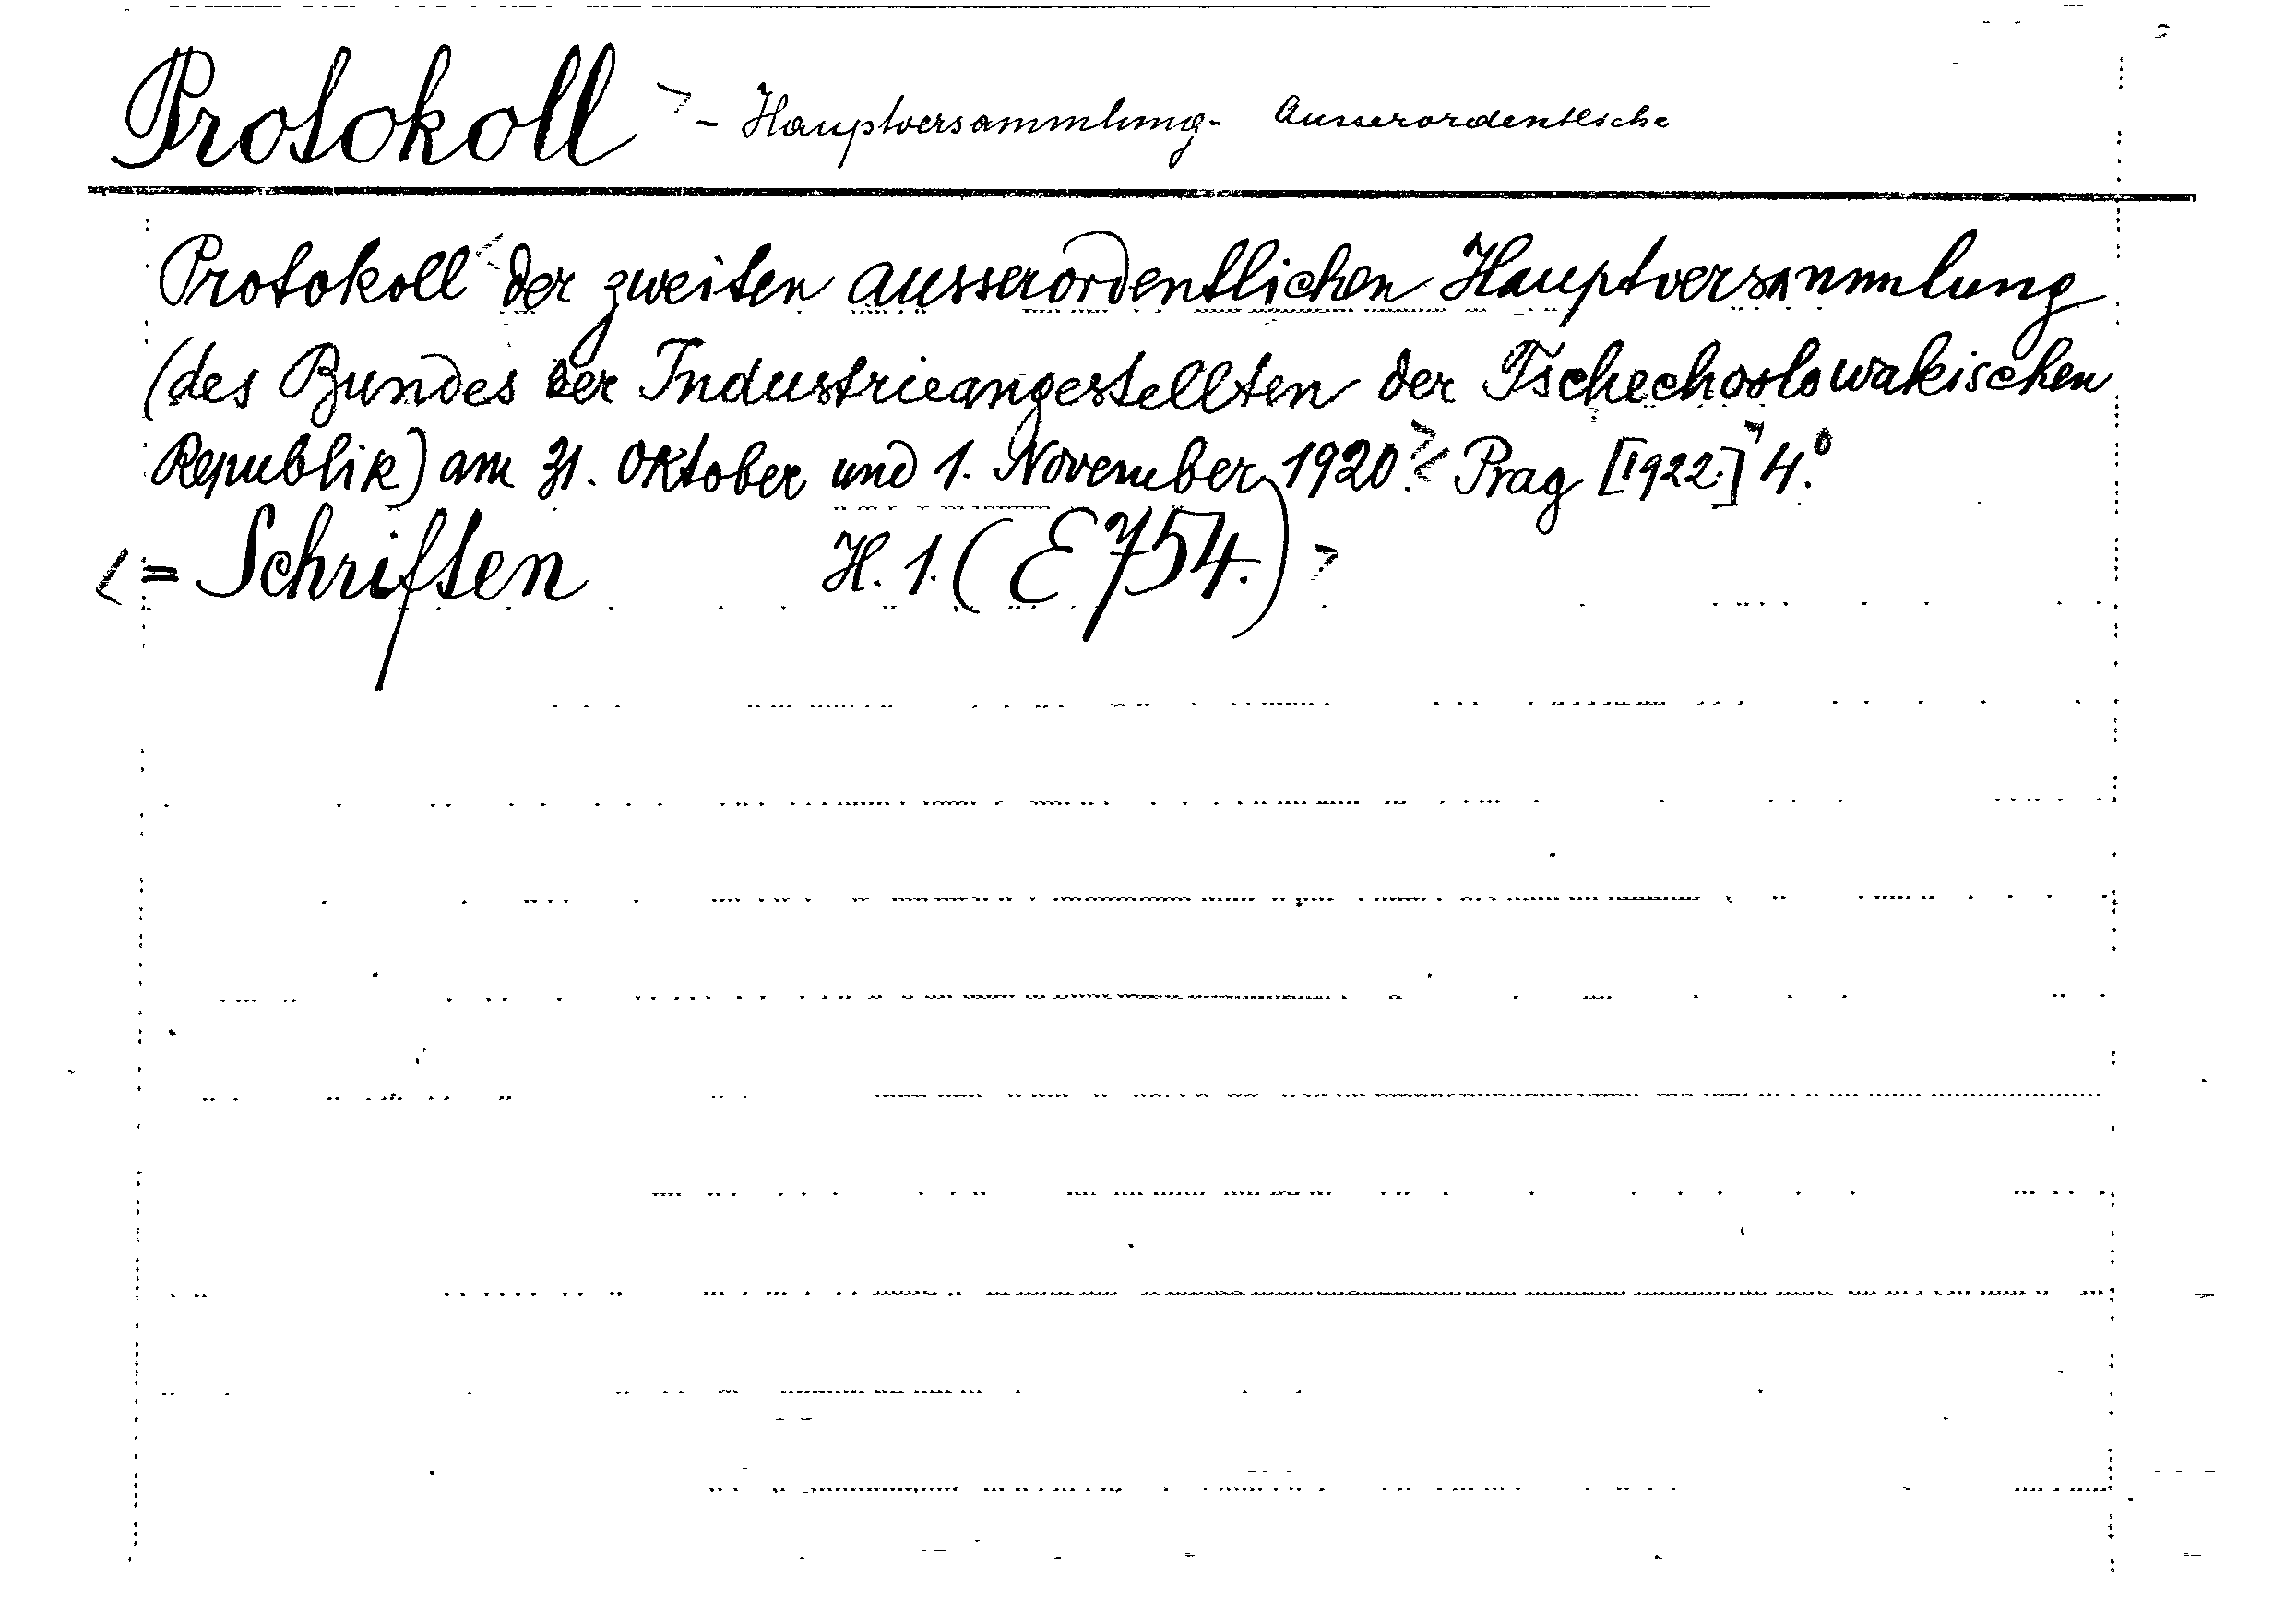 Protokoll > - Hauptversammlung - Ausserordentliche
Protokoll < der zweiten ausserordentlichen Hauptversammlung
(des Bundes der Industrieangestellten der Tschechoslowakischen
Republik) am 31. Oktober und 1. November 1920. > < Prag [1922.] > 4.°
< = Schriften H. 1. (E 754.) >